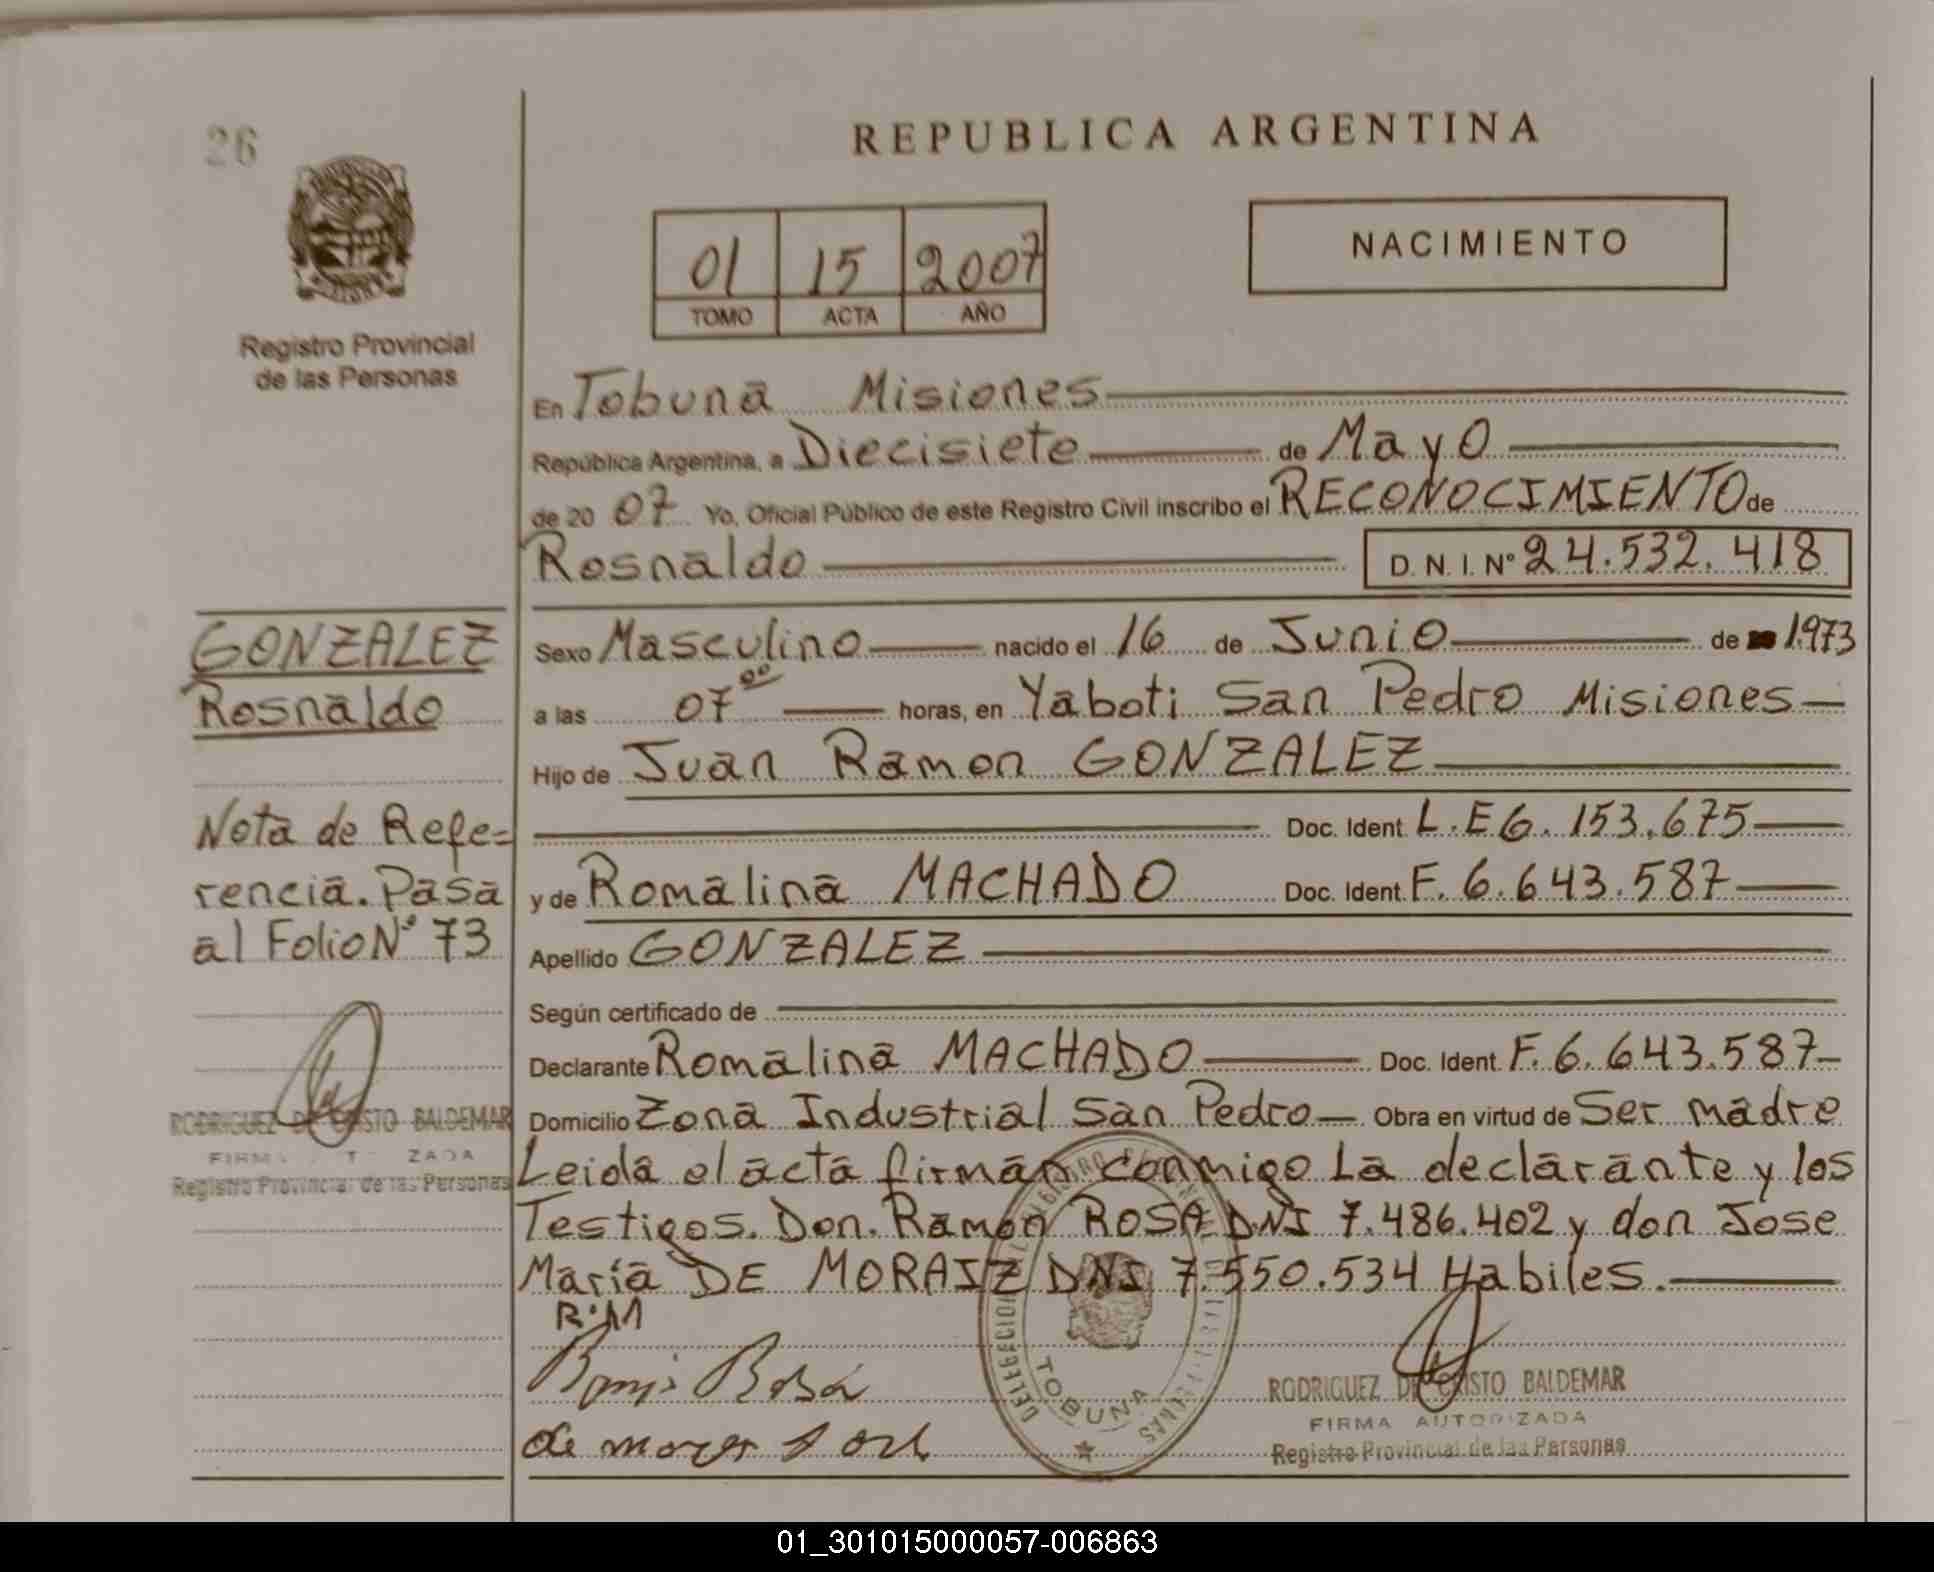 26
REPUBLICA ARGENTINA
NACIMIENTO
01 15 2007
TOMO ACTA AÑO
Registro Provincial
de las Personas
En Tobuna Misiones
República Argentina, a Diecisiete de Mayo
de 20 07 Yo, Oficial Público de este Registro Civil inscribo el RECONOCIMIENTO de
Rosnaldo D. N. I. Nº 24.532.418
GONZALEZ
Rosnaldo
Sexo Masculino nacido el 16 de Junio de 1973
a las 07 00 horas, en Yaboti San Pedro Misiones
Hijo de Juan Ramon GONZALEZ
Doc. Ident. L.E 6.153.675
y de Romalina MACHADO Doc. Ident. F. 6.643.587
Apellido GONZALEZ
Nota de Refe=
rencia. Pasa
al Folio Nº 73
Según certificado de
Declarante Romalina MACHADO Doc. Ident. F. 6.643.587
Domicilio Zona Industrial San Pedro Obra en virtud de Ser madre
Leida el acta firman conmigo La declarante y los
Testigos. Don. Ramon ROSA DNI 7.486.402 y don Jose
Maria DE MORAIZ DNI 7.550.534 Habiles.
RODRIGUEZ DE CRISTO BALDEMAR
FIRMA AUTORIZADA
Registro Provincial de las Personas
R.M
DELEGACION
TOBUNA
RODRIGUEZ DE CRISTO BALDEMAR
FIRMA AUTORIZADA
Registro Provincial de las Personas
01_301015000057-006863